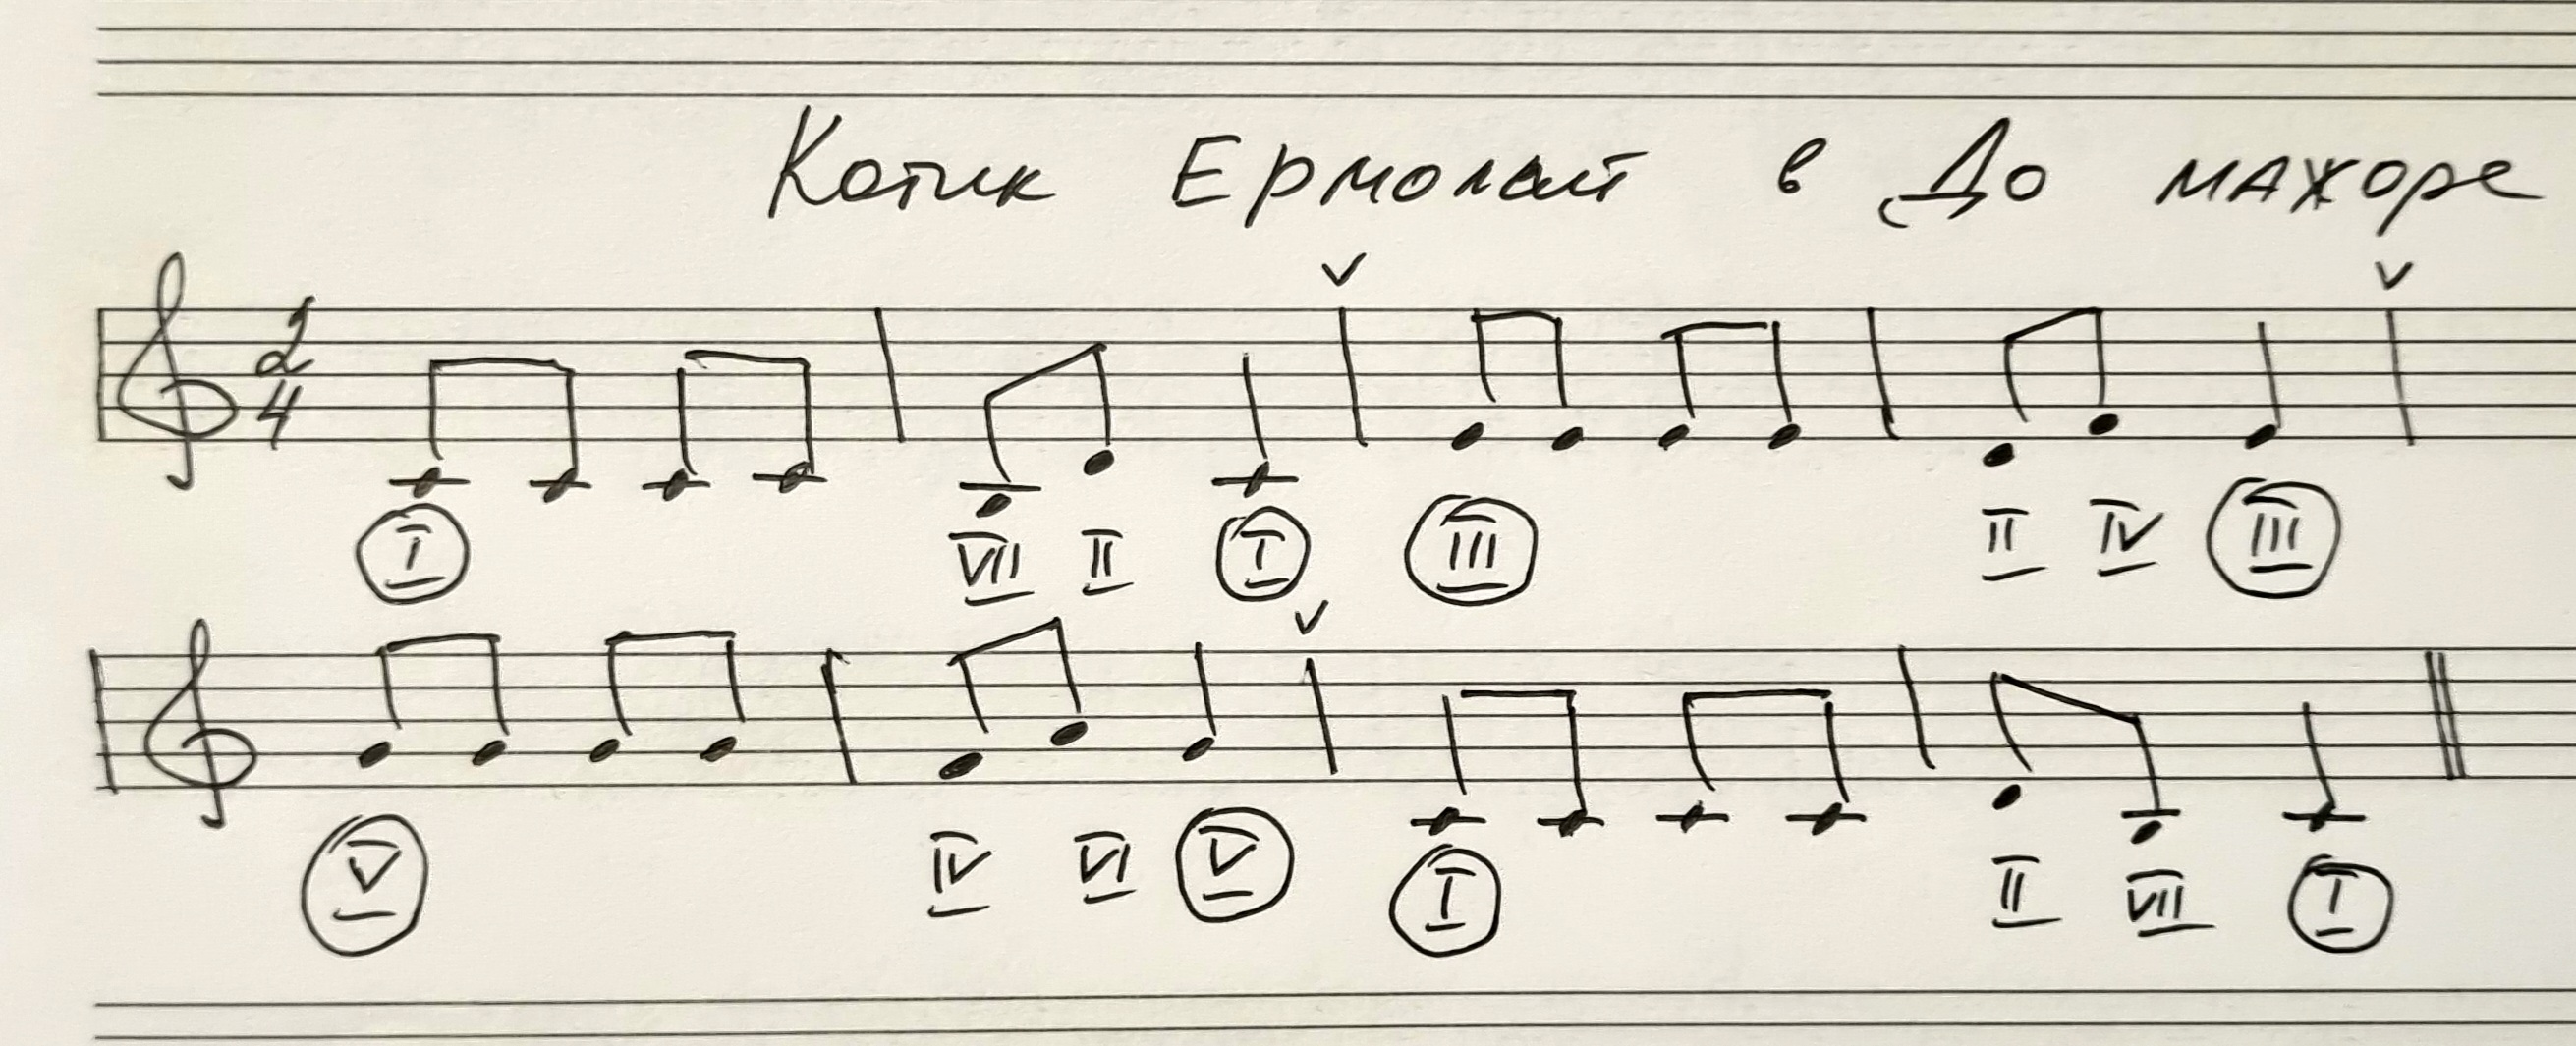 Котик Ермолай в До мажоре
2
4
I VII II I III II IV III
V IV VI V I II VII I